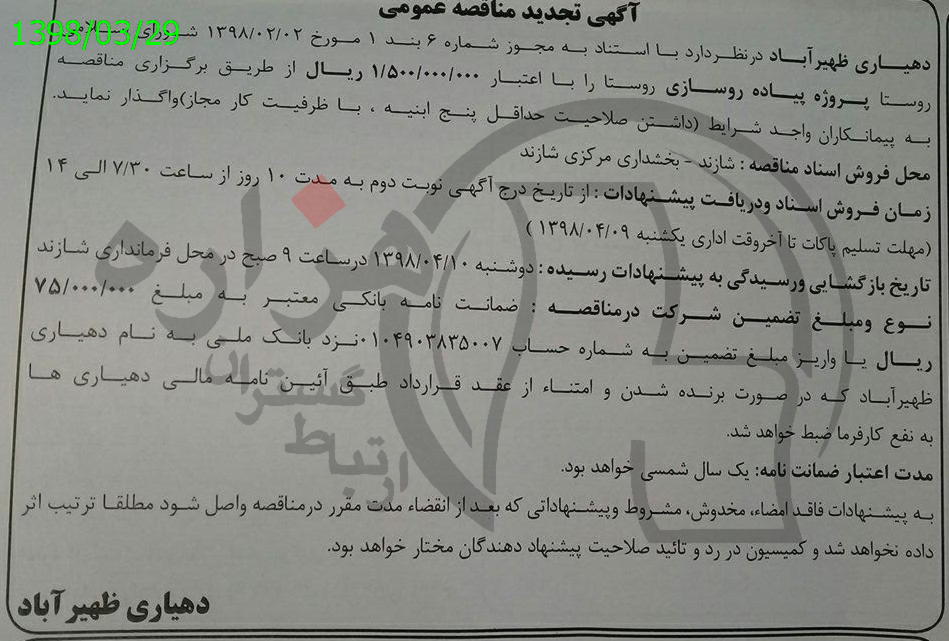 آگهی تجدید مناقصه عمومی
1398/03/29
دهیاری ظهیرآباد درنظردارد با استناد به مجوز شماره ۶ بند ۱ مورخ ۱۳۹۸/۰۲/۰۲ شورای اسلامی
روستا پروژه پیاده روسازی روستا را با اعتبار ۱/۵۰۰/۰۰۰/۰۰۰ ریال از طریق برگزاری مناقصه
به پیمانکاران واجد شرایط (داشتن صلاحیت حداقل پنج ابنیه ، با ظرفیت کار مجاز)واگذار نماید.
محل فروش اسناد مناقصه : شازند - بخشداری مرکزی شازند
زمان فروش اسناد ودریافت پیشنهادات : از تاریخ درج آگهی نوبت دوم به مدت ۱۰ روز از ساعت ۷/۳۰ الی ۱۴
(مهلت تسلیم پاکات تا آخروقت اداری یکشنبه ۱۳۹۸/۰۴/۰۹ )
تاریخ بازگشایی ورسیدگی به پیشنهادات رسیده : دوشنبه ۱۳۹۸/۰۴/۱۰ درساعت ۹ صبح در محل فرمانداری شازند
نوع ومبلغ تضمین شرکت درمناقصه : ضمانت نامه بانکی معتبر به مبلغ ۷۵/۰۰۰/۰۰۰
ریال یا واریز مبلغ تضمین به شماره حساب ۰۱۰۴۹۰۳۸۳۵۰۰۷ نزد بانک ملی به نام دهیاری
ظهیرآباد که در صورت برنده شدن و امتناء از عقد قرارداد طبق آئین نامه مالی دهیاری ها
به نفع کارفرما ضبط خواهد شد.
مدت اعتبار ضمانت نامه: یک سال شمسی خواهد بود.
به پیشنهادات فاقد امضاء، مخدوش، مشروط وپیشنهاداتی که بعد از انقضاء مدت مقرر درمناقصه واصل شود مطلقا ترتیب اثر
داده نخواهد شد و کمیسیون در رد و تائید صلاحیت پیشنهاد دهندگان مختار خواهد بود.
دهیاری ظهیرآباد
هزاره
گستران
ارتباط